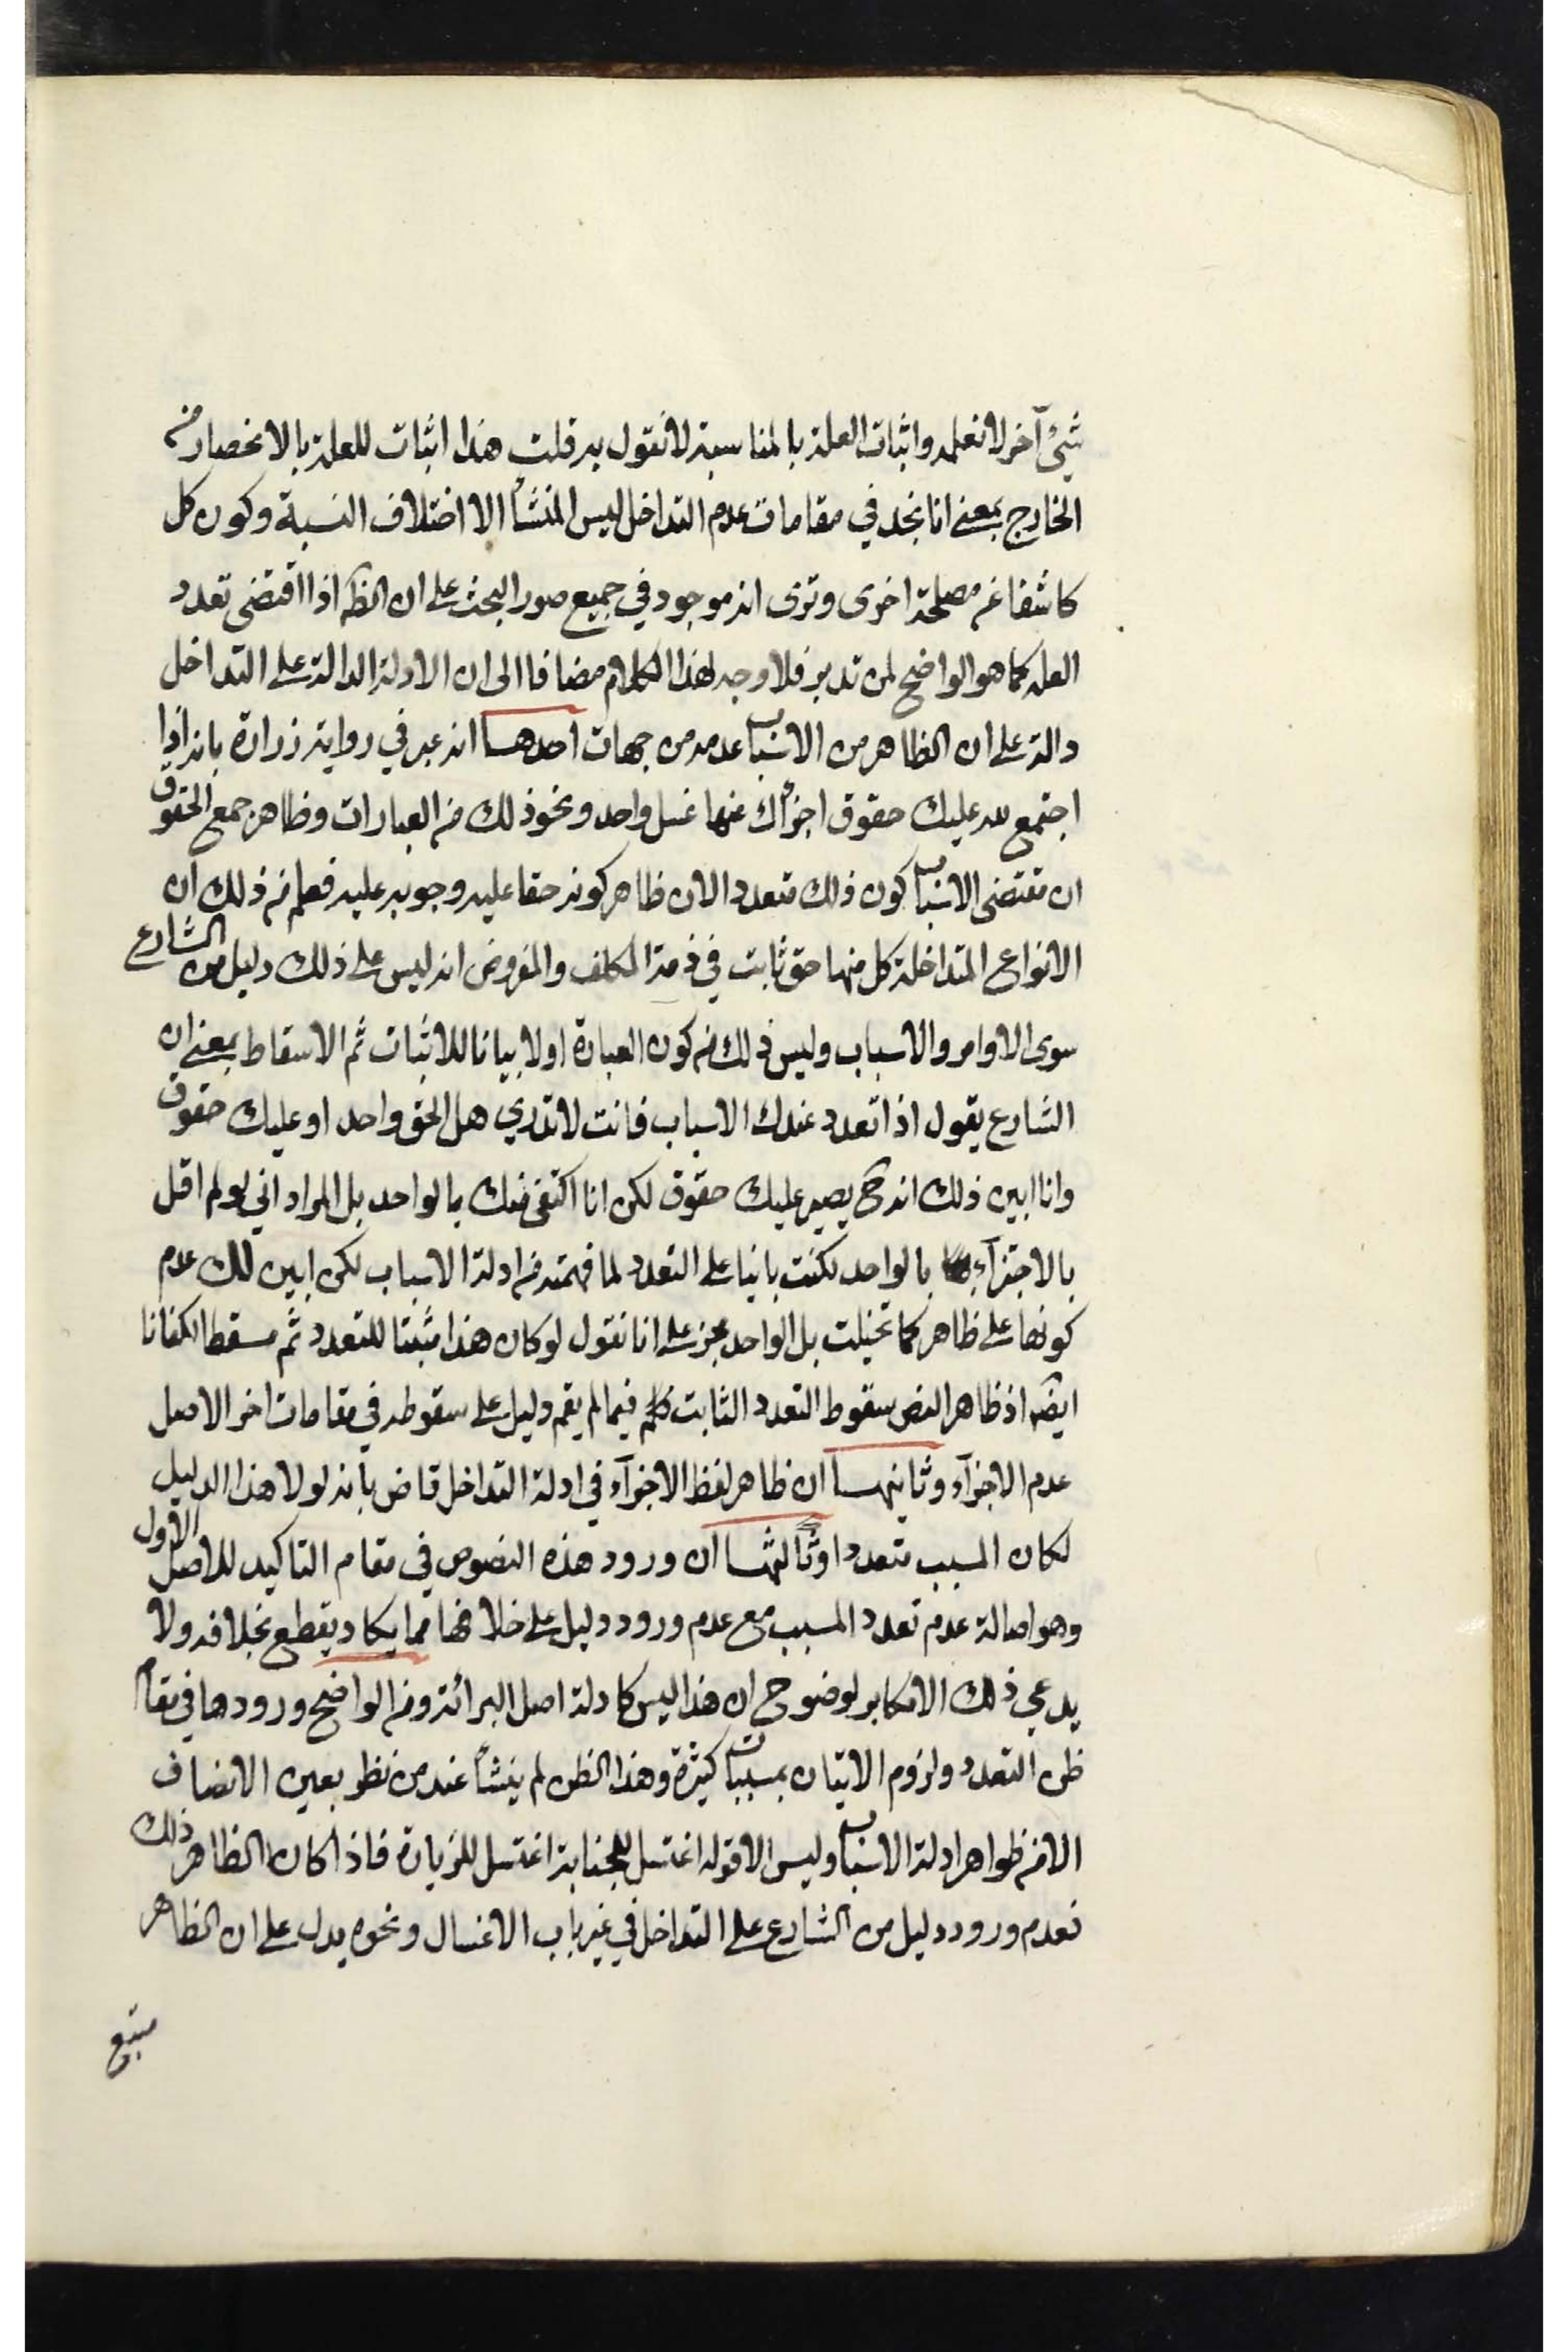 شيئ آخر لا نعلمه واثبات العلة بالمناسبة لا نقول به قلت هذا اثبات للعلة بالانحصار من
الخارج بمعنى انا نجد في مقامات عدم التداخل ليس المنشأ الا اختلاف النسبة وكون كل
كاشفا عن مصلحة اخرى وترى انه موجود في جميع صور البحث على ان الظه اذا اقتضى تعدد
العلة كما هو الواضح لمن تدبر فلا وجه لهذا الكلام مضافا الى ان الادلة الدالة على التداخل
دالة على ان الظاهر من الاسباب عدمه من جهات احدها انه عبر في رواية زرارة بانه اذا
اجتمع لله عليك حقوق اجزأك عنها غسل واحد ونحو ذلك من العبارات وظاهر جمع الحقوق
ان مقتضى الاسباب كون ذلك متعددا لان ظاهر كونه حقا عليه وجوبه عليه فعلم من ذلك ان
الانواع المتداخلة كل منها حق ثابت في ذمة المكلف والمفروض انه ليس على ذلك دليل من الشارع
سوى الاوامر والاسباب وليس ذلك من كون العبارة اولا بيانا للاثبات ثم الاسقاط بمعنى ان
الشارع يقول اذا تعدد عندك الاسباب فانت لا تدري هل الحق واحد او عليك حقوق
وانا ابين ذلك انه ح يصير عليك حقوق لكن انا اكتفى منك بالواحد بل المراد اني لو لم اقل
بالاجتزآء بالواحد لكنت بانيا على التعدد لما فهمته من ادلة الاسباب لكن ابين لك عدم
كونها على ظاهر كما تخيلت بل الواحد مجز على انا نقول لو كان هذا مثبتا للتعدد ثم مسقطا لكفانا
ايضه اذ ظاهر النص سقوط التعدد الثابت فيما لم يقم دليل على سقوطه في مقامات اخر الاصل
عدم الاجزآء وثانيها ان ظاهر لفظ الاجزآء في ادلة التداخل قاض بأنه لولا هذا الدليل
لكان المسبب متعددا وثالثها ان ورود هذه النصوص في مقام التاكيد للاصل الاول
وهو اصالة عدم تعدد المسبب مع عدم ورود دليل على خلافها مما يكاد يقطع بخلافه ولا
يدعي ذلك الا مكابر لوضوح ان هذا ليس كادلة اصل البرائة ومن الواضح ورودها في مقام
ظن التعدد ولزوم الاتيان بمسببات كثيرة وهذا الظن لم ينشأ عند من نظر بعين الانصاف
الا من ظواهر ادلة الاسباب وليس الا قوله اغتسل للجنابة اغتسل للزيارة فاذا كان الظاهر ذلك
فعدم ورود دليل من الشارع على التداخل في غير باب الاغسال ونحوه يدل على ان الظاهر